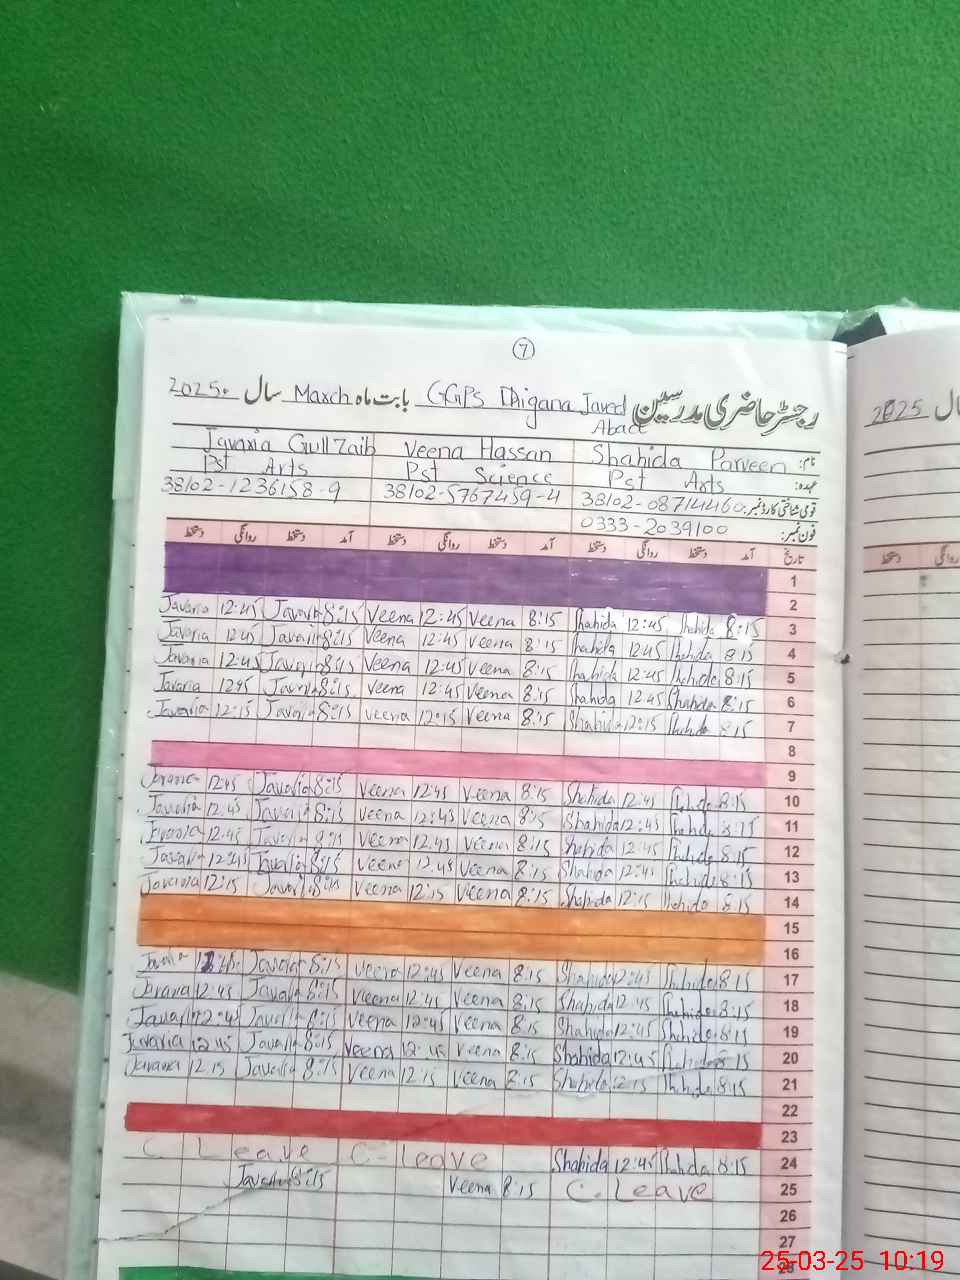 7
رجسٹر حاضری مدرسین GGPS Dhigana Javed Abad بابت ماہ March سال 2025.
2025
نام: Shahida Parveen Veena Hassan Javaria Gull Zaib
عہدہ: Pst Arts Pst Science Pst Arts
قومی شناختی کارڈ نمبر: 38102-08714460 38102-5767459-4 38102-1236158-9
فون نمبر: 0333-2039100
تاریخ آمد دستخط روانگی دستخط آمد دستخط روانگی دستخط آمد دستخط روانگی دستخط
دستخط روانگی
1
2
Javaria 12:45 Javaria 8:15 Veena 12:45 Veena 8:15 Shahida 12:45 Shahida 8:15 3
Javaria 1245 Javaria 8:15 Veena 12:45 Veena 8:15 Shahida 1245 Shahida 8:15 4
Javaria 12:45 Javaria 8:15 Veena 12:45 Veena 8:15 Shahida 12:45 Shahida 8:15 5
Javaria 1245 Javaria 8:15 Veena 12:45 Veena 8:15 Shahida 12:45 Shahida 8:15 6
Javaria 12:15 Javaria 8:15 Veena 12:15 Veena 8:15 Shahida 12:15 Shahida 8:15 7
8
9
Javaria 12:45 Javaria 8:15 Veena 12:45 Veena 8:15 Shahida 12:45 Shahida 8:15 10
Javaria 12:45 Javaria 8:15 Veena 12:45 Veena 8:15 Shahida 12:45 Shahida 8:15 11
Javaria 12:45 Javaria 8:15 Veena 12:45 Veena 8:15 Shahida 12:45 Shahida 8:15 12
Javaria 12:45 Javaria 8:15 Veena 12:45 Veena 8:15 Shahida 12:45 Shahida 8:15 13
Javaria 12:15 Javaria 8:15 Veena 12:15 Veena 8:15 Shahida 12:15 Shahida 8:15 14
15
16
Javaria 12:45 Javaria 8:15 Veena 12:45 Veena 8:15 Shahida 12:45 Shahida 8:15 17
Javaria 12:45 Javaria 8:15 Veena 12:45 Veena 8:15 Shahida 12:45 Shahida 8:15 18
Javaria 12:45 Javaria 8:15 Veena 12:45 Veena 8:15 Shahida 12:45 Shahida 8:15 19
Javaria 12:45 Javaria 8:15 Veena 12:45 Veena 8:15 Shahida 12:45 Shahida 8:15 20
Javaria 12:15 Javaria 8:15 Veena 12:15 Veena 8:15 Shahida 12:15 Shahida 8:15 21
22
23
C Leave C- Leave Shahida 12:45 Shahida 8:15 24
Javaria 8:15 Veena 8:15 C. Leave 25
26
27
28
25-03-25 10:19